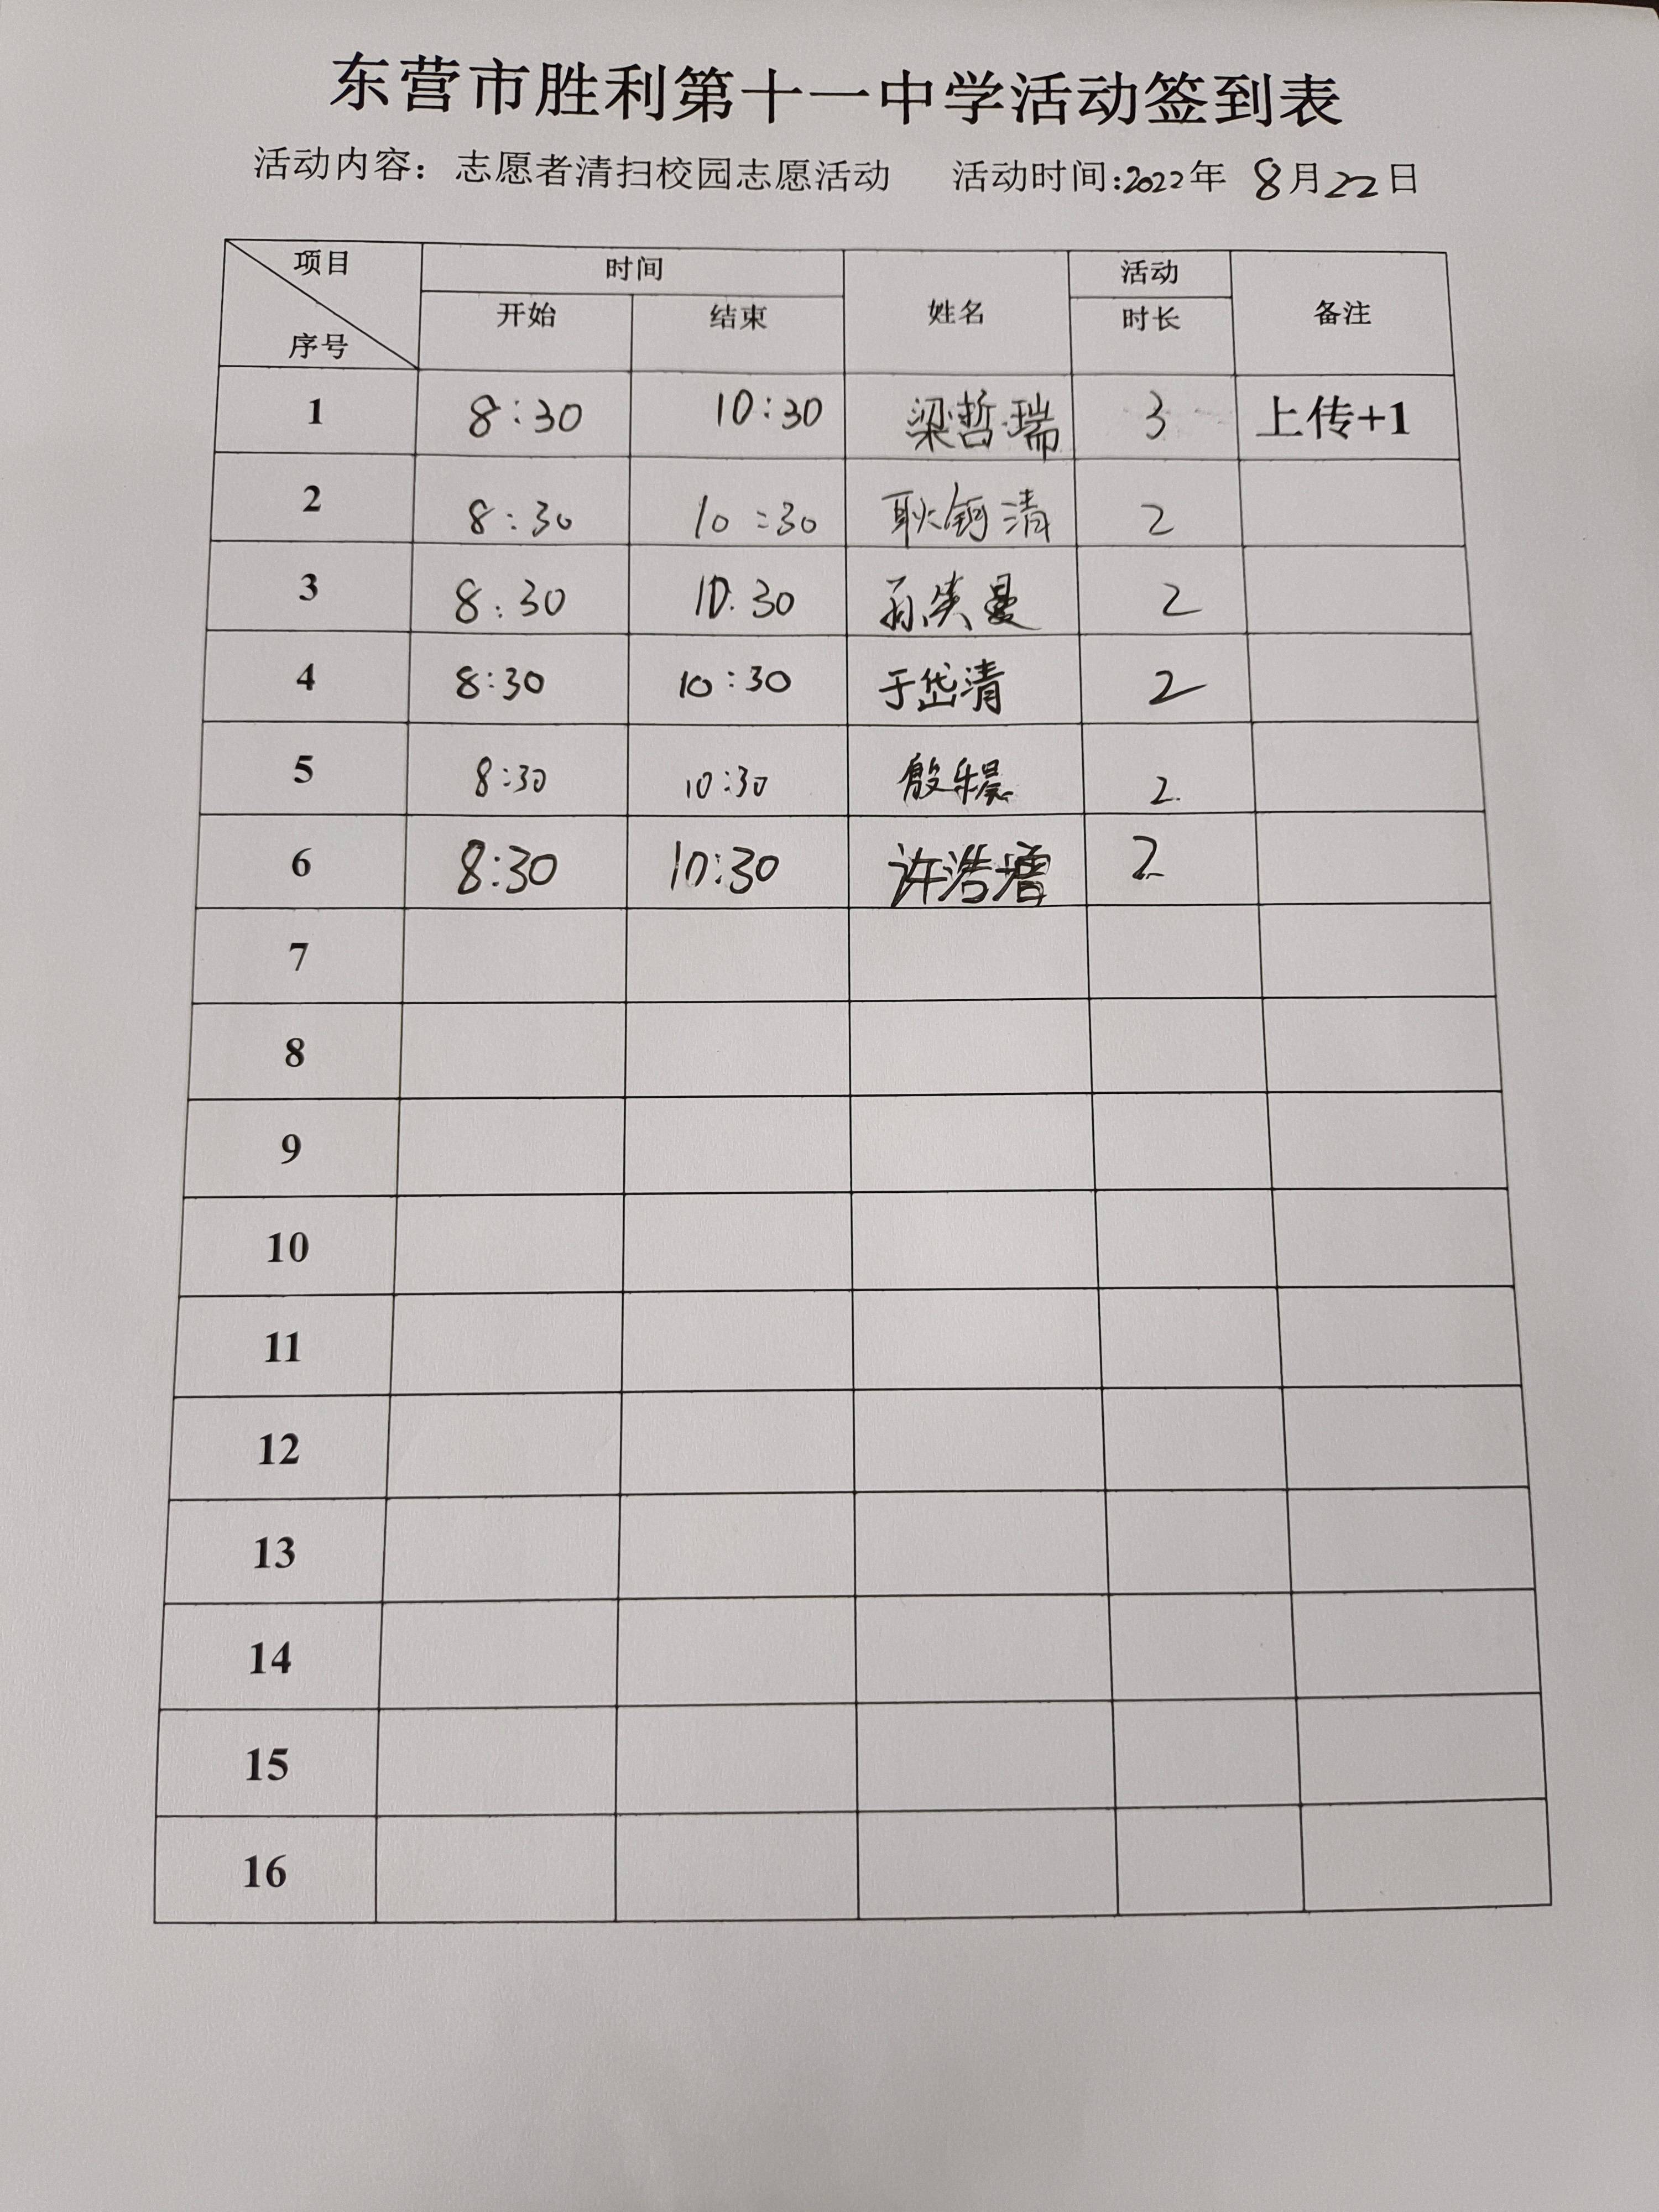 东营市胜利第十一中学活动签到表
活动内容：志愿者清扫校园志愿活动 活动时间:2022年 8月22日
项目 时间 姓名 活动 备注
序号 开始 结束 时长
1 8:30 10:30 梁哲瑞 3 上传+1
2 8:30 10:30 耿钶清 2
3 8:30 10:30 2
4 8:30 10:30 于岱清 2
5 8:30 10:30 殷 2
6 8:30 10:30 许浩 2
7
8
9
10
11
12
13
14
15
16